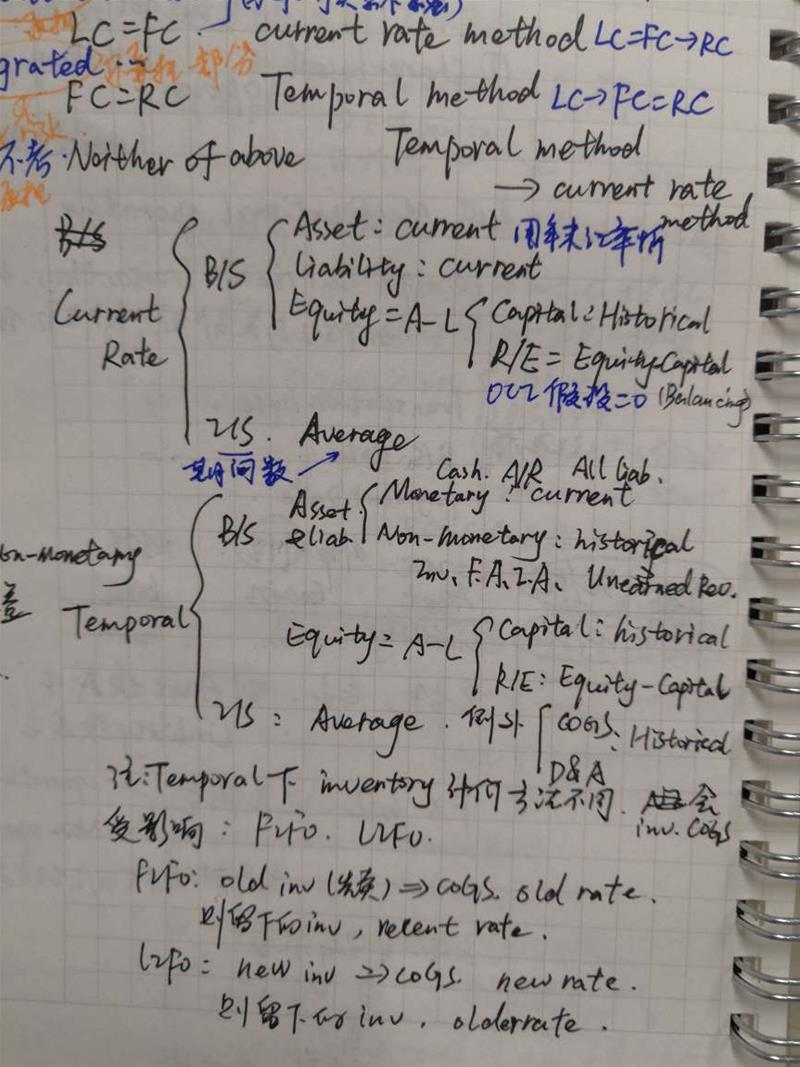 LC=FC. current rate method LC=FC→RC
grated 部分
FC=RC Temporal method LC→FC=RC
不考·Neither of above Temporal method
→ current rate method
B/S Asset: current 用年末汇率折
Current Rate B/S Liability: current
Equity=A-L Capital: Historical
R/E= Equity-Capital
OCI 假设=0 (Balancing)
I/S. Average
期间数 Cash. A/R All liab.
B/S Asset &liab. Monetary: current
on-monetary Non-monetary: historical
Inv、F.A、I.A、 Unearned Rev.
差 Temporal
Equity= A-L Capital: historical
R/E: Equity-Capital
I/S: Average. 例外 COGS: Historical
D&A
注:Temporal下 inventory 计价方法不同. 会
受影响: FIFO. LIFO. inv. COGS
FIFO: old inv (先卖)⇒COGS. old rate.
则留下的inv, recent rate.
LIFO: new inv ⇒COGS. new rate.
则留下的inv. older rate.